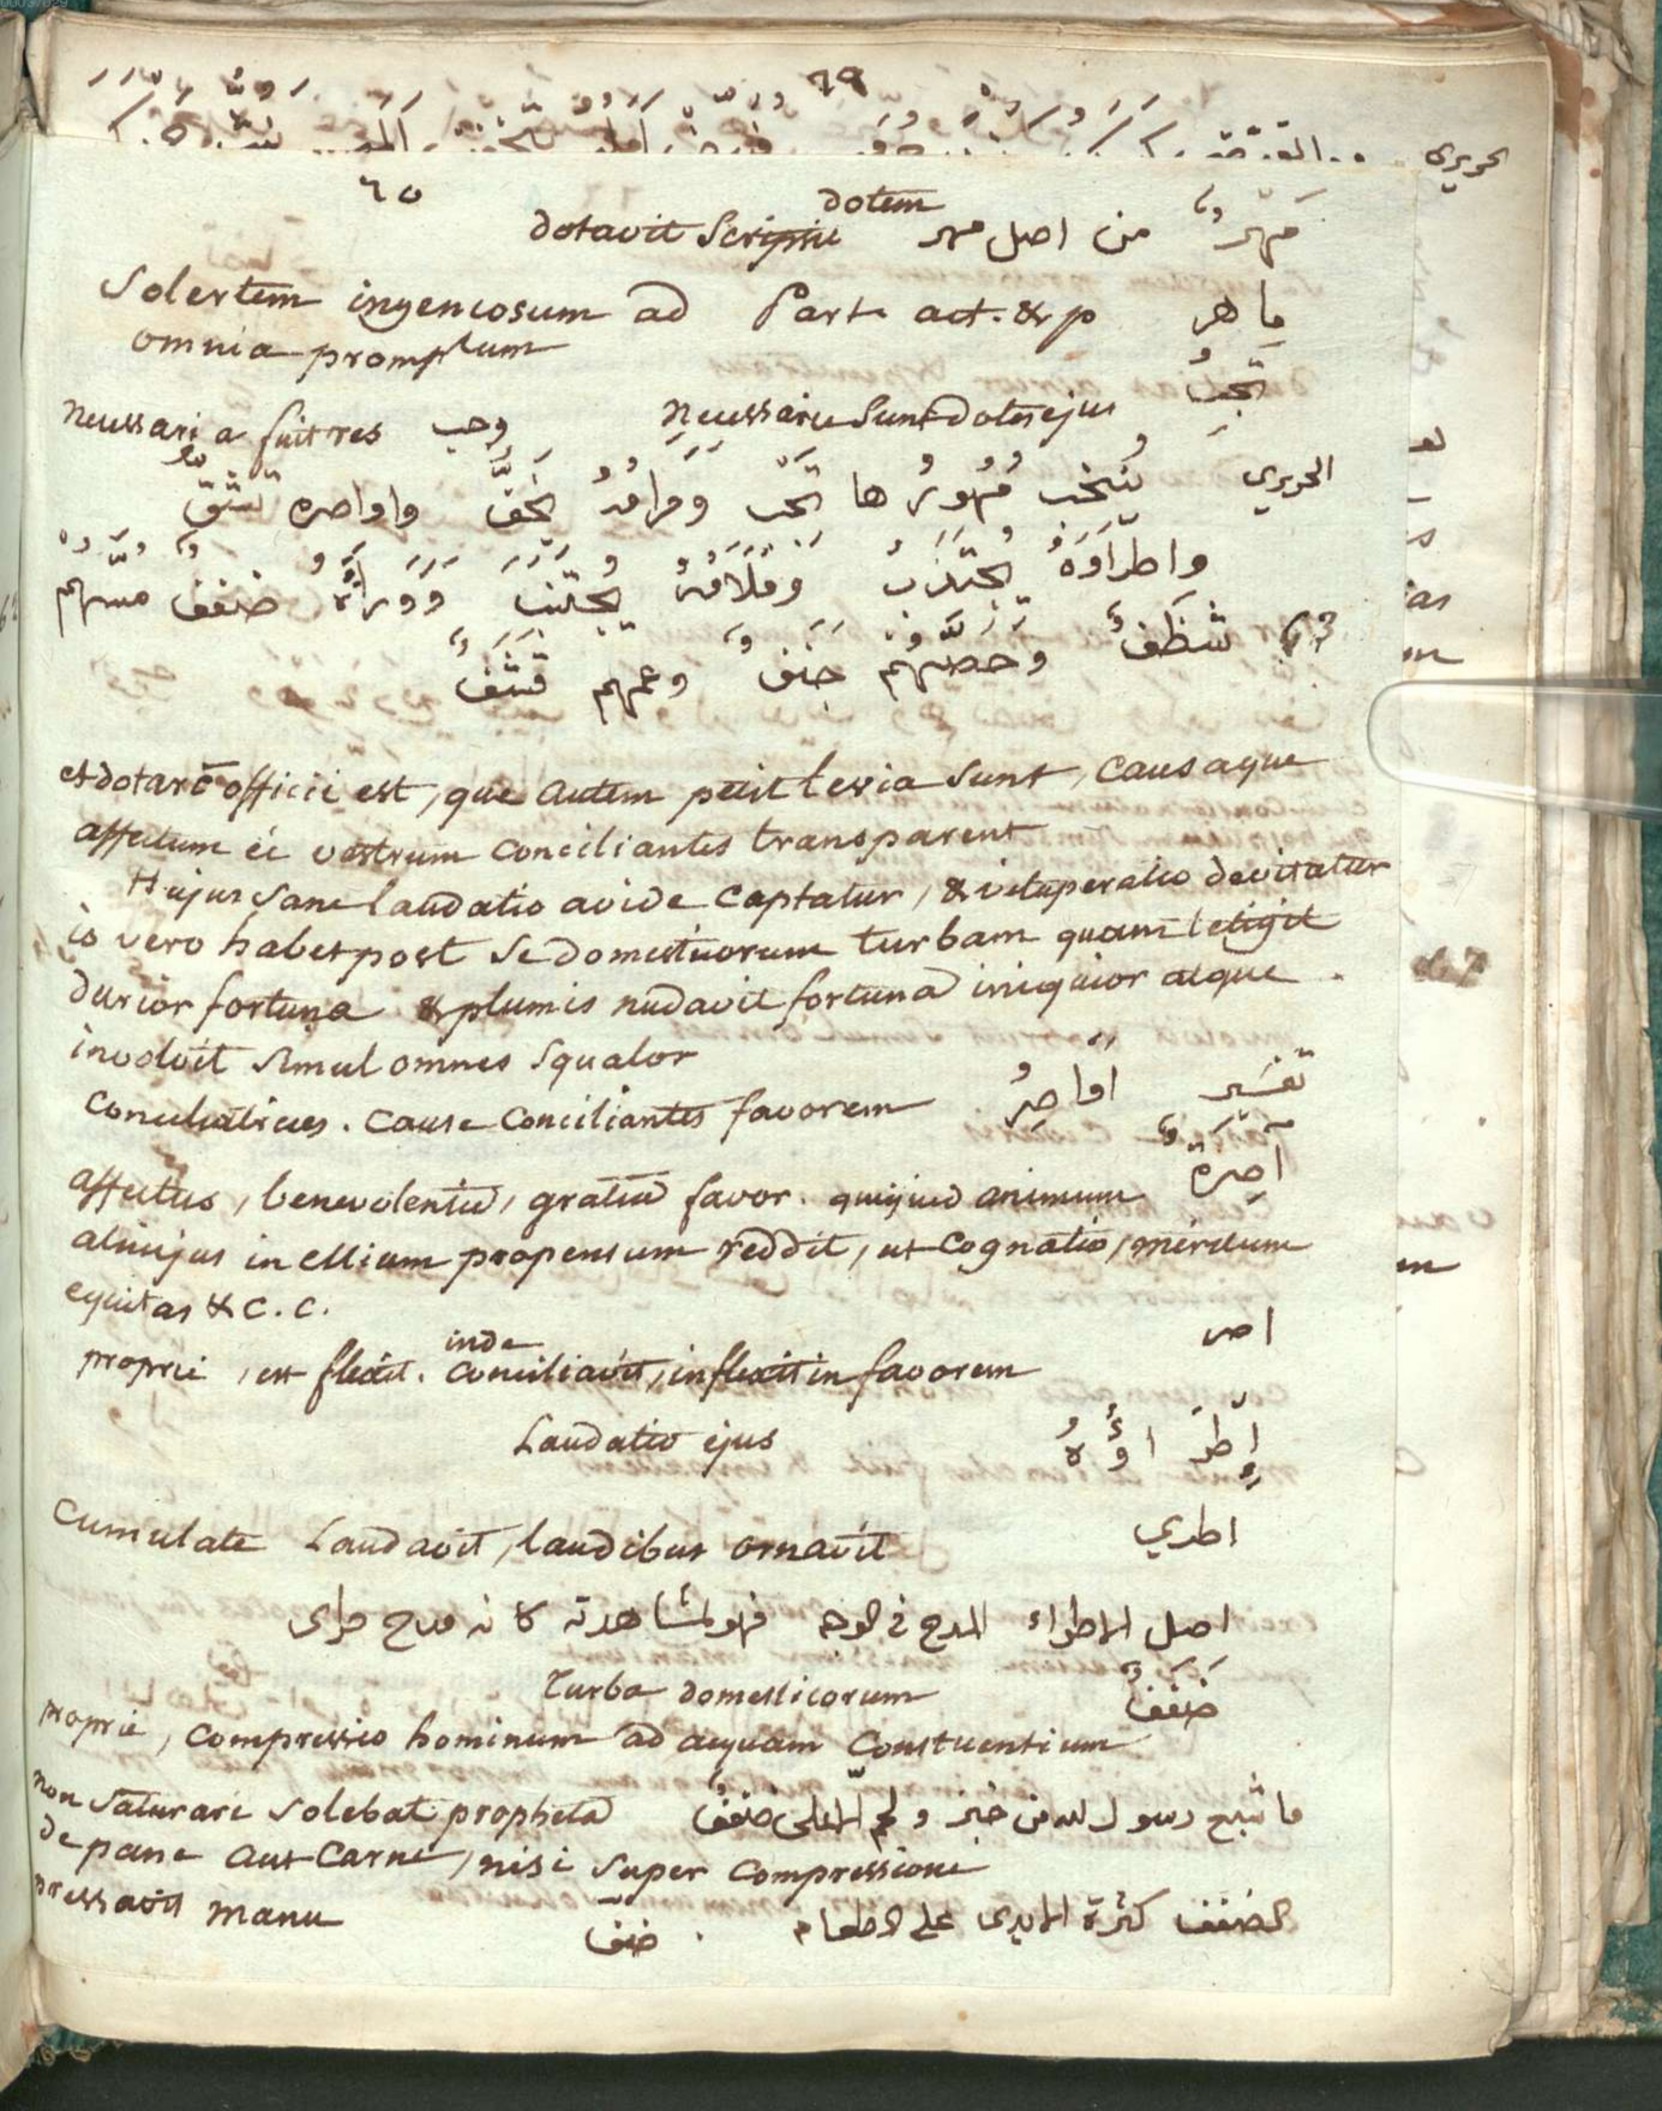 ٦٩
حريري
٦٥
dotem
مَهْرٌ من اصل مهر dotavit Scripsit
ماهر Part. act. & p Solertem ingeniosum ad
omnia promptum
تجبُ
Necessarie Sunt Dotes ejus وجب necessaria fuit res
الحريري يُنتخب مُهُورُها تَجب ومرامُهُ يَخفّ واواصره تشفّ
واطراؤهُ يُجتذبُ وملامُهُ يُجتنبَ ووراءَهُ ضففٌ مسّهم
63 شظفٌ وَحَصّهُم جَنَفٌ وعمهم قشفٌ
et dotare officii est, que autem petit levia Sunt, causaque
affectum ei vestrum conciliantes transparent
Hujus Sane laudatio avide Captatur, & vituperatio devitatur
is vero habet post Se domesticorum turbam quam tetigit
durior fortuna & plumis nudavit fortuna iniquior atque
involvit Simul omnes Squalor
تفسير اواصِرُ Conciliatrices. Cause Conciliantes favorem
آصِرَةٌ
affectus, benevolentia, gratia favor. quiquid animum
alicujus in ellium propensum reddit, ut Cognatio, meritum
equitas & C. C.
اصر
inde
proprie, est flexit. Conciliavit, inflexit in favorem
اِطراؤُهُ Laudatio ejus
اطري
Cumulate Laudavit, laudibus ornavit
اصل الاطراء المدح في الوجه فهو لمشاهدته كانه مدح مراى
ضَفَفٌ Turba domesticorum
proprie, Compressio hominum ad aquam Confluentium
ما شبع رسول الله من خبز ولحم الا على ضففٌ non Saturari Solebat propheta
de pane aut Carne, nisi Super Compressione
الضفف كثرة الايدى على الطعام . ضفّ pressavit manu